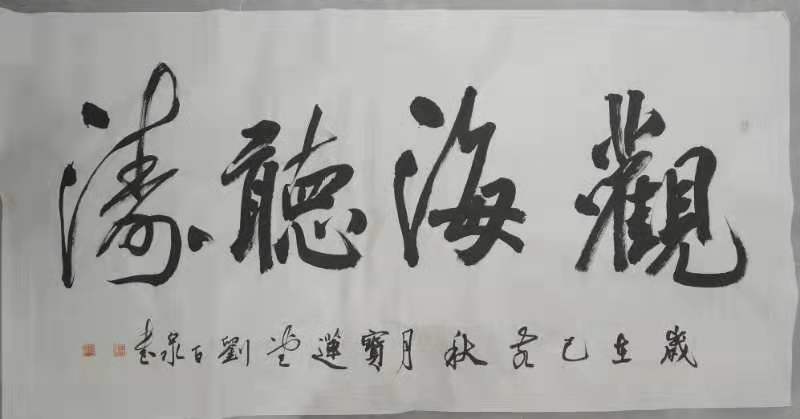 觀海聽濤
歲在己亥秋月寶蓮堂劉百泉書